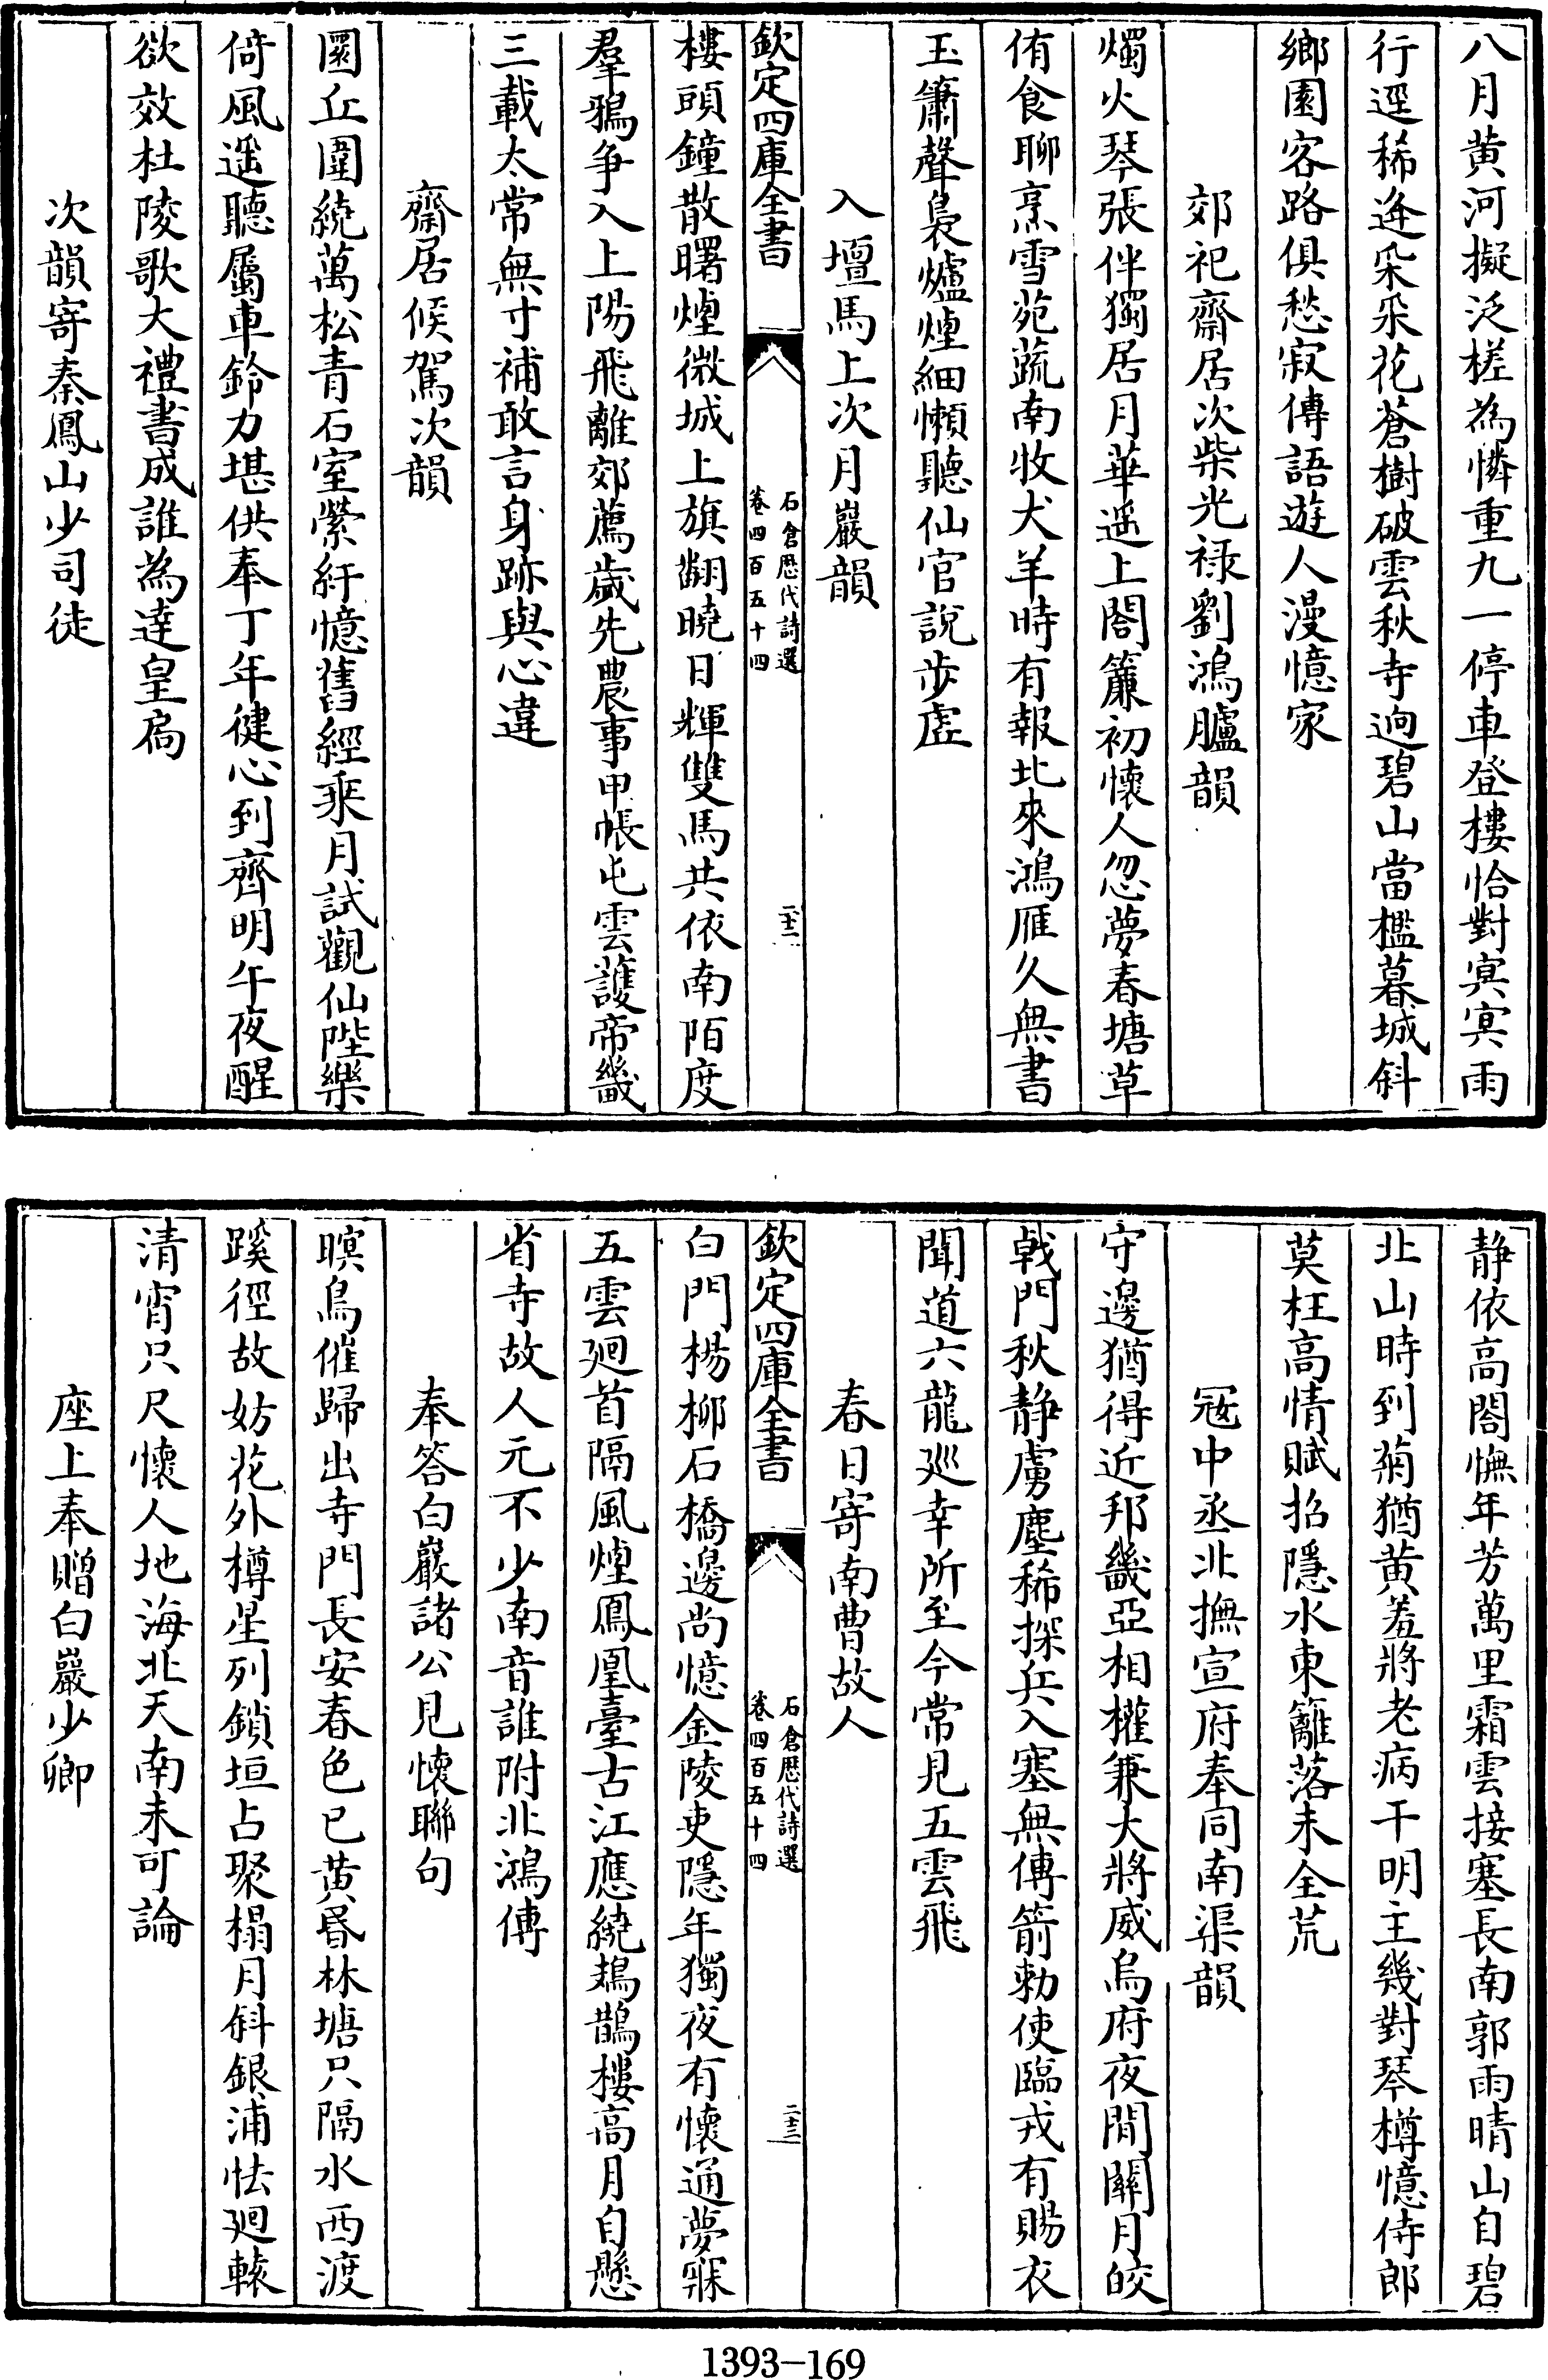 八月黄河擬泛槎為憐重九一停車登樓恰對㝠㝠雨
行逕稀逢朶朶花蒼樹破雲秋寺逈碧山當檻暮城斜
鄉園客路俱愁寂傳語遊人漫憶家
郊祀齋居次柴光禄劉鴻臚韻
燭火琴張伴獨居月華遥上閣簾初懷人忽夢春塘草
侑食聊烹雪苑蔬南牧犬羊時有報北來鴻雁久無書
玉簫聲裊爐煙細懶聽仙官說步虚
入壇馬上次月巖韻
欽定四庫全書
石倉歴代詩選
卷四百五十四
二十二
樓頭鐘散曙煙微城上旗翻曉日輝雙馬共依南陌度
羣鴉争入上陽飛離郊薦歲先農事甲帳屯雲䕶帝畿
三載太常無寸補敢言身跡與心違
齋居候駕次韻
圜丘圍繞萬松青石室縈紆憶舊經乘月試觀仙陛樂
倚風遥聽屬車鈴力堪供奉丁年健心到齊明午夜醒
欲效杜陵歌大禮書成誰為達皇扃
次韻寄秦鳳山少司徒
静依高閣憮年芳萬里霜雲接塞長南郭雨晴山自碧
北山時到菊猶黄羞將老病干明主幾對琴樽憶侍郎
莫枉高情賦招隠水東籬落未全荒
冦中丞北撫宣府奉同南渠韻
守邊猶得近邦畿亞相權兼大將威烏府夜閒關月皎
戟門秋静虜塵稀探兵入塞無傳箭勅使臨戎有賜衣
聞道六龍廵幸所至今常見五雲飛
春日寄南曹故人
欽定四庫全書
石倉歴代詩選
卷四百五十四
二十三
白門楊柳石橋邊尚憶金陵吏隠年獨夜有懷通夢寐
五雲廻首隔風煙鳳凰臺古江應繞鳷鵲樓高月自懸
省寺故人元不少南音誰附北鴻傳
奉答白巖諸公見懷聯句
暝鳥催歸出寺門長安春色已黄昏林塘只隔水西渡
蹊徑故妨花外樽星列鎖垣占聚榻月斜銀浦怯廻轅
清宵只尺懷人地海北天南未可論
座上奉贈白巖少卿
1393-169